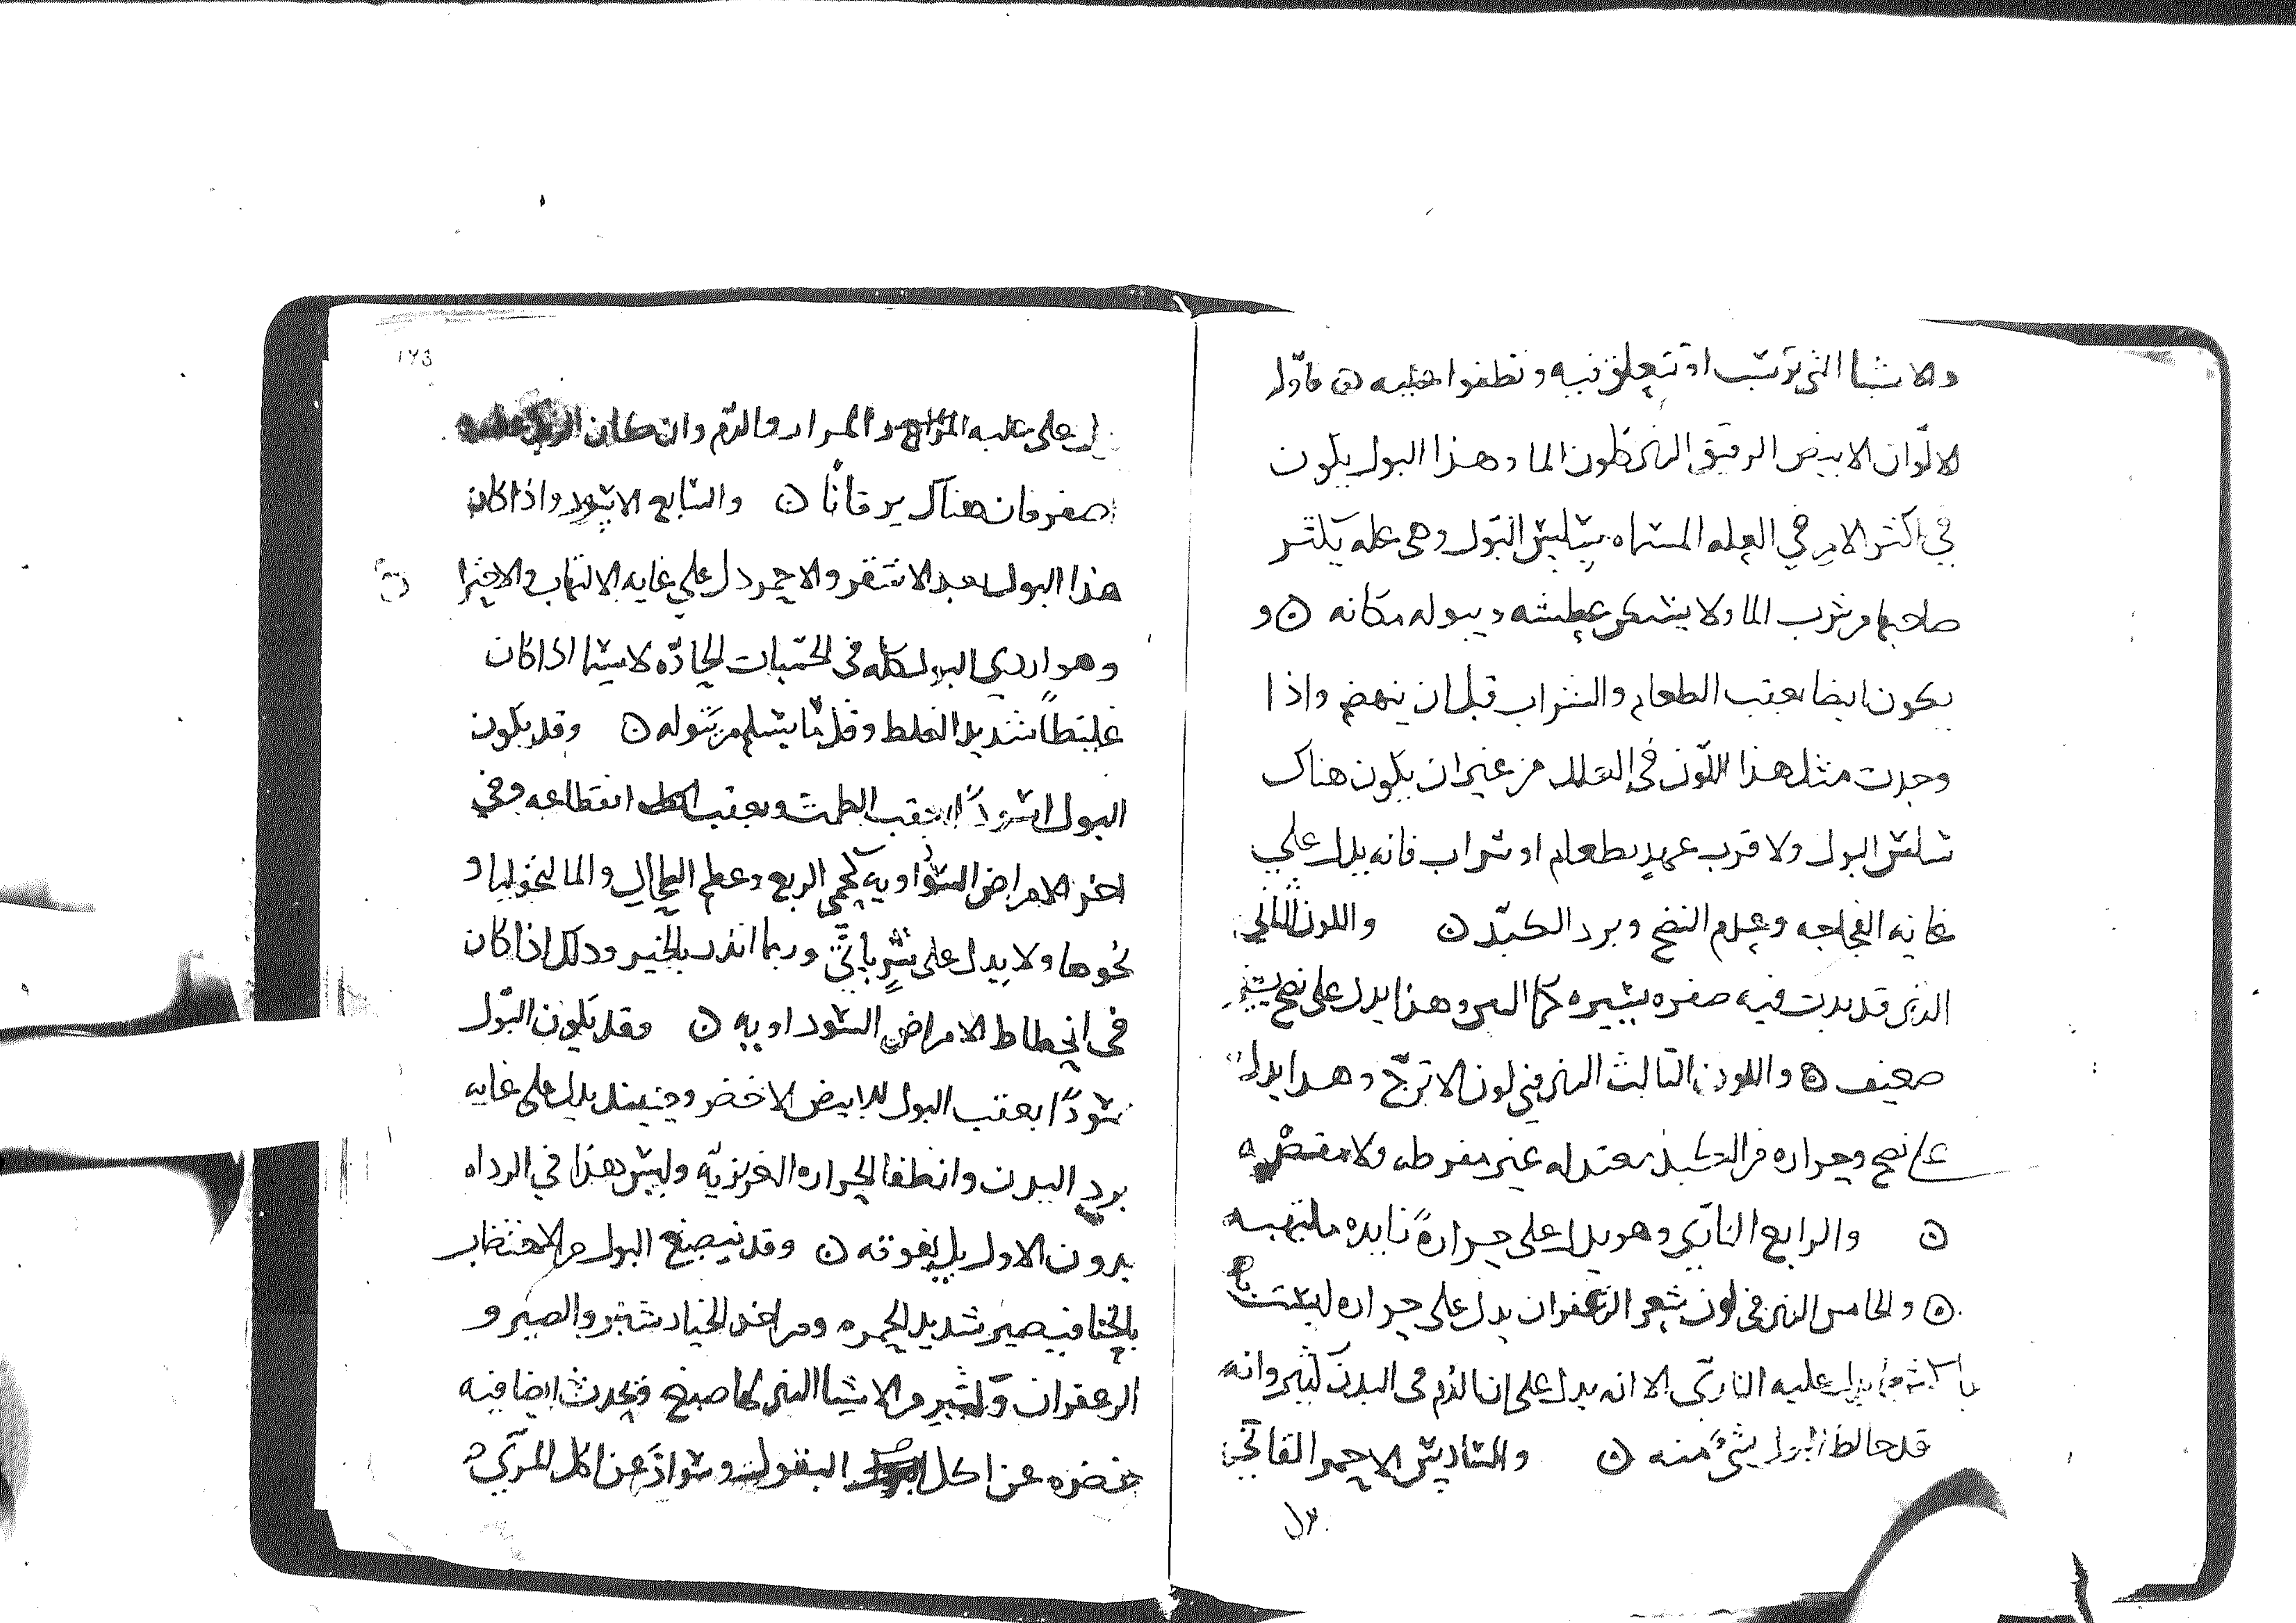 والاشيا التي ترسب او تتعلق فيه وتطفوا عليه ۞ فاول
الالوان الابيض الرقيق الذي كلون الما وهذا البول يكون
في اكثر الامر في العله المسماه بسلس البول وهي عله يكثر
صاحبها من شرب الما ولا يسكن عطشه ويبوله مكانه ۞ و
يكون ايضا بعقب الطعام والشراب قبل ان ينهضم واذا
وجدت مثل هذا اللون في العلل من غير ان يكون هناك
سلس البول ولا قرب عهد بطعام او شراب فانه يدل علي
غايه الفجاجه وعدم النضج وبرد الكبد ۞ واللون الثاني
الذي قد بدت فيه صفره يسيره كما التبن وهذا يدل على نضج
ضعيف ۞ واللون الثالث الذي في لون الاترج وهذا يدل
على نضج وحراره في الكبد معتدله غير مفرطه ولا مقصره
۞ والرابع الناري وهو يدل على حرارة زايده ملتهبه
۞ والخامس الذي في لون شعر الزعفران يدل على حراره ليست
باكثر مما يدل عليه الناري الا انه يدل على ان الدم في البدن كثير وانه
قد خالط البول شئ منه ۞ والسادس الاحمر القاني
يدل
١٧٣
يدل على غلبه المرار والدم وان كان
اصفر فان هناك يرقانًا ۞ والسابع الاسود واذا كان
هذا البول بعد الاشقر والاحمر دل علي غايه الالتهاب والاحتراق
وهو اردي البول كله في الحميات الحاده لا سيما اذا كان
غليظًا شديد الغلظ وقل ما يسلم من بوله ۞ وقد يكون
البول اسودًا بعقب الطمث وبعقب انقطاعه وفي
اخر الامراض السوداويه كحمى الربع وعظم الطحال والمالنخوليا و
نحوها ولا يدل على شرٍ باتي وربما انذر بالخير وذلك اذا كان
في انحطاط الامراض السوداويه ۞ وقد يكون البول
اسودًا بعقب البول الابيض الاخضر وحينيذ يدل على غايه
برد البدن وانطفا الحراره الغريزيه وليس هذا في الرداه
بدون الاول بل يفوقه ۞ وقد ينصبغ البول من الاختضاب
بالحنا فيصير شديد الحمره ومن اخذ الخيار شنبر والصبر و
الزعفران وكثير من الاشيا الذي لها صبغ ويحدث ايضا فيه
خضره عن اكل البقول وسوادٌ عن اكل المري